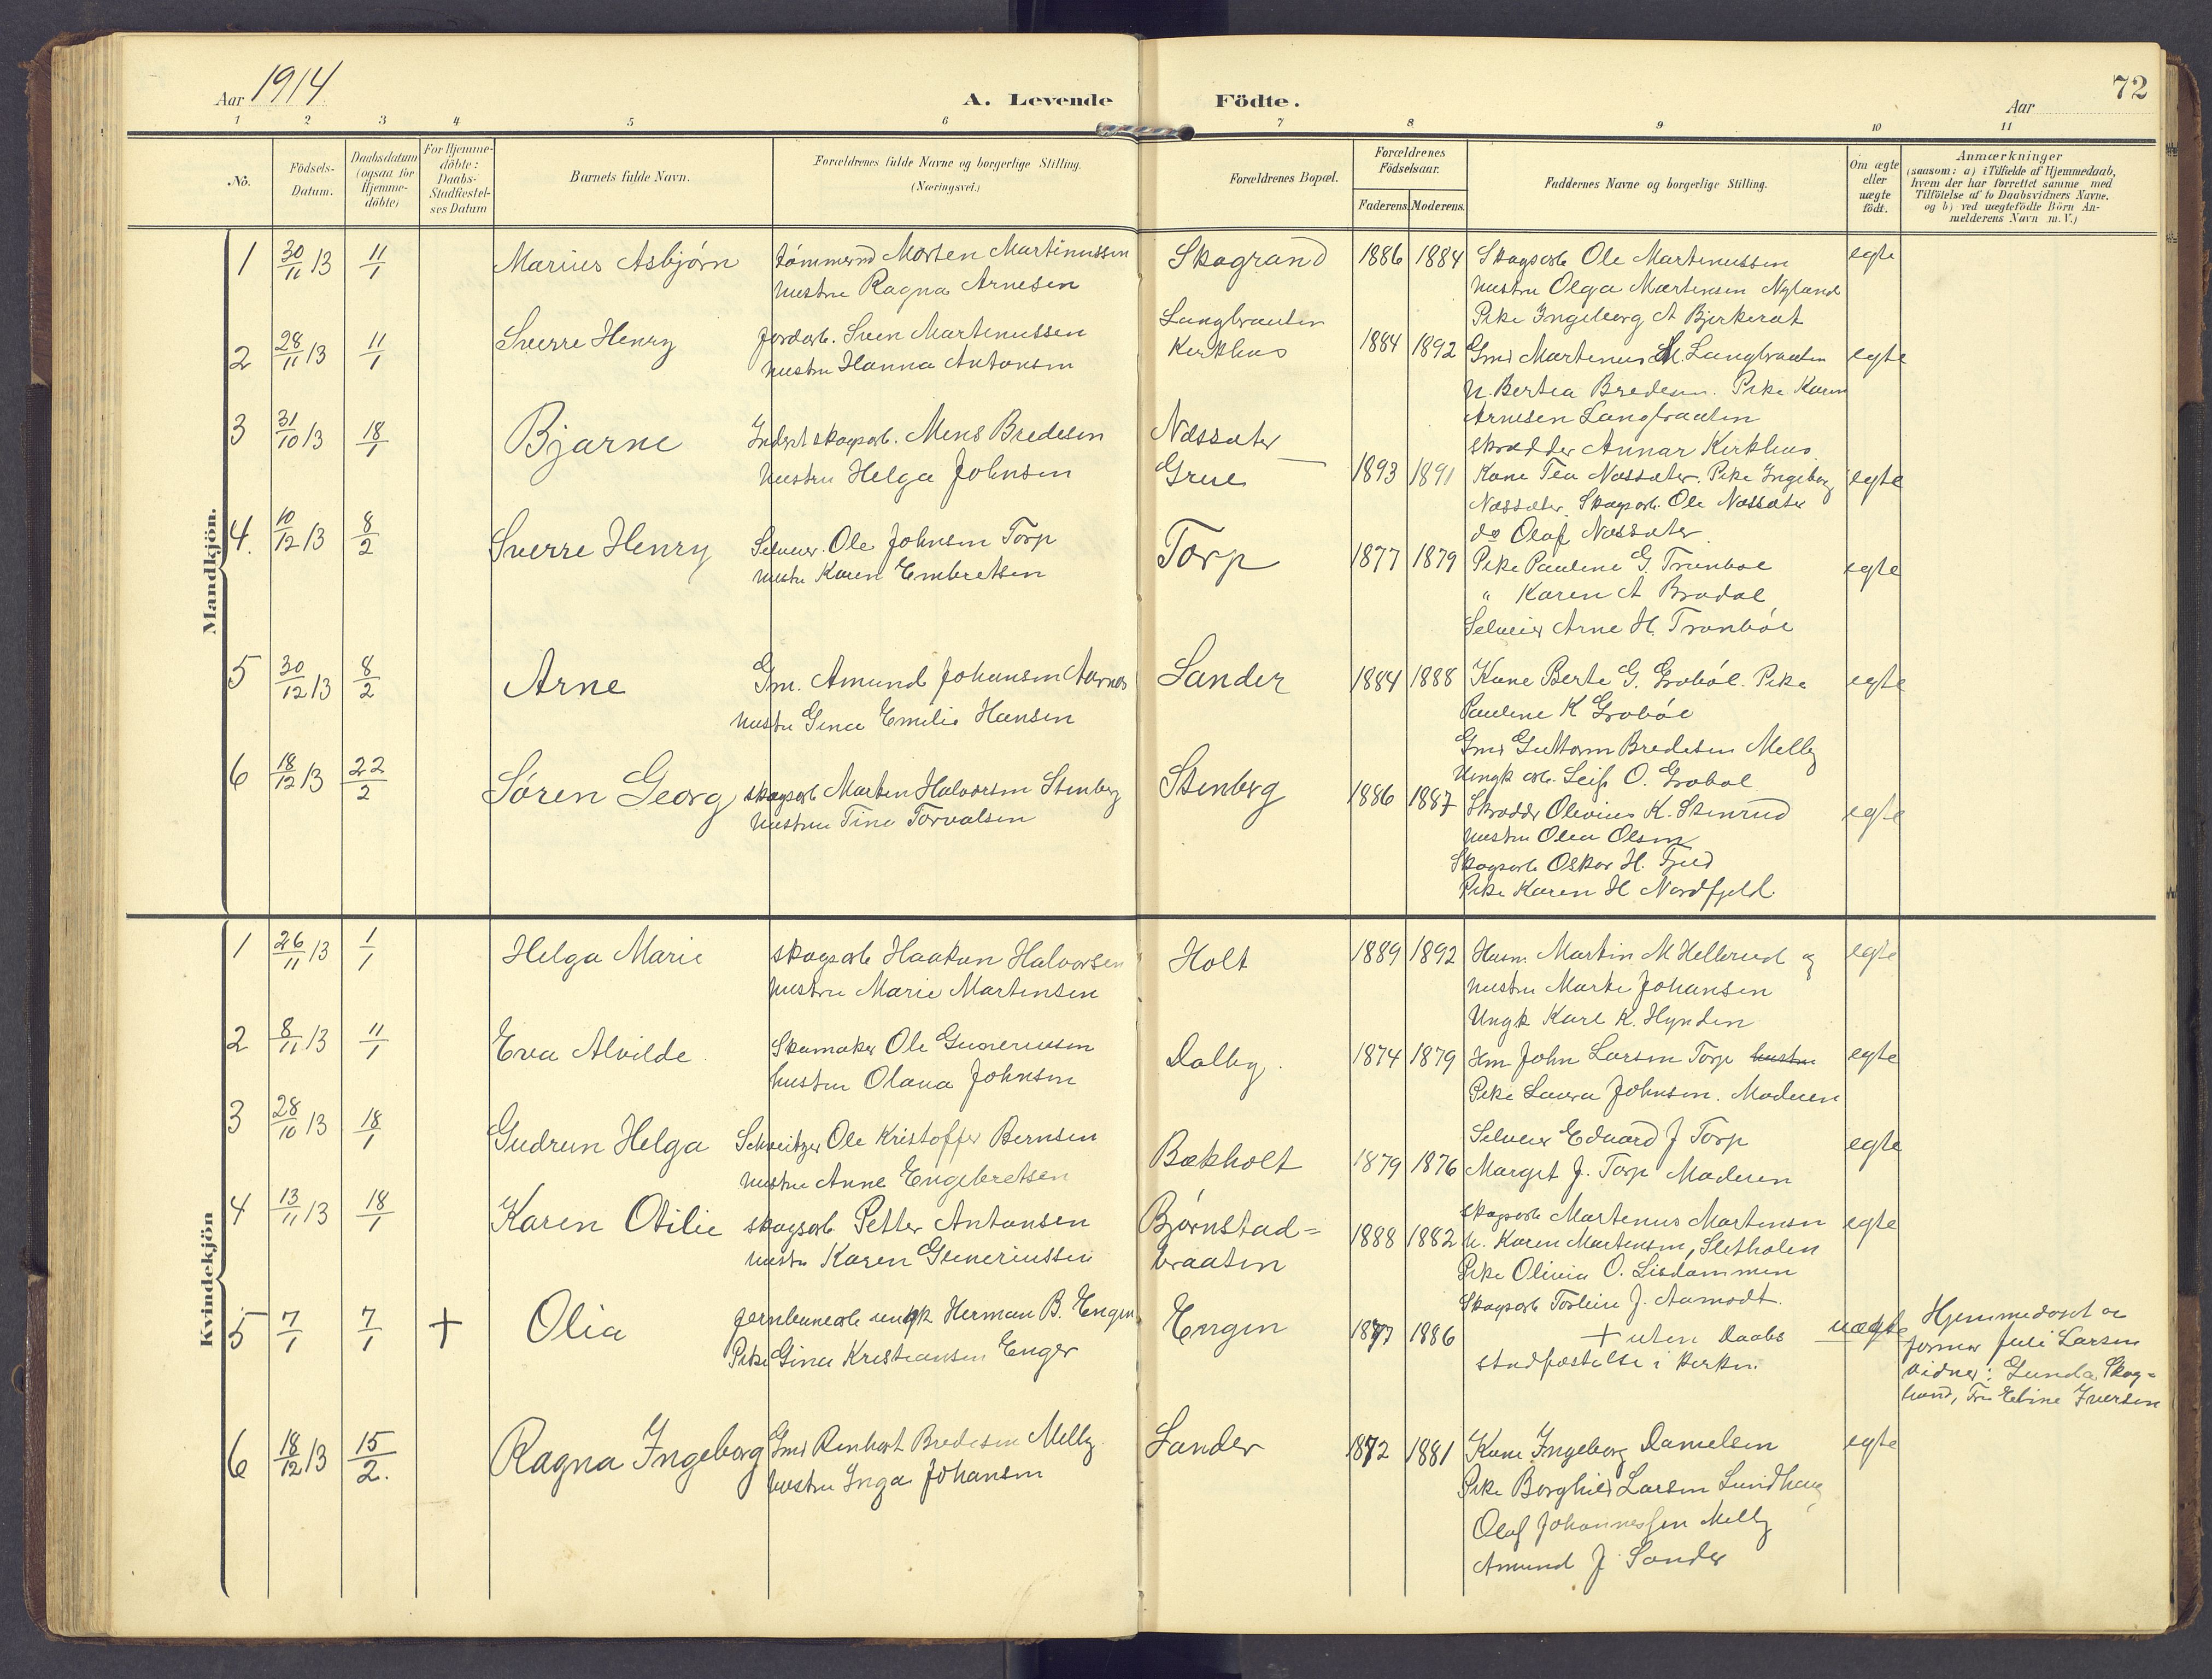 Aar 1914
A. Levende Födte.
Aar
72
1 2 3 4 5 6 7 8 9 10 11
No.
Födsels-
Datum.
Daabsdatum
(ogsaa for
Hjemme-
döbte)
For Hjemme-
döbte:
Daabs-
Stadfæstel-
ses Datum
Barnets fulde Navn.
Forældrenes fulde Navne og borgerlige Stilling.
(Næringsvei.)
Forældrenes Bopæl.
Forældrenes
Födselsaar.
Faderens. Moderens.
Faddernes Navne og borgerlige Stilling.
Om ægte
eller
uægte
födt.
Anmærkninger
(saasom: a) i Tilfælde af Hjemmedaab,
hvem der har forrettet samme med
Tilföielse af to Daabsvidners Navne.
og b) ved uægtefödte Börn An-
melderens Navn m. V.)
Mandkjön.
1 30/11 13 11/1 Marius Asbjørn
Morten Martinussen
hustru Ragna Arnesen
Skogrand 1886 1884
Skogsarb Ole Martinussen
hustru Olga Martensen Nyland
Pike Ingeborg A Bjerkerot
egte
2 28/11 13 11/1 Sverre Henry
Jordarb. Sven Martinussen
hustru Hanna Antonsen
Langbraaten
Kirkhus
1884 1892
Gmd Martinus M. Langbraaten
h. Bertea Bredesen. Pike Karen
Arnesen Langbraaten
skrædder Annar Kirkhus.
egte
3 31/10 13 18/1 Bjarne
Inderst skogsarb. Mens Bredesen
hustru Helga Johnsen
Næssæter
Grue
1893 1891
Kone Tea Næssæter. Pike Ingeborg
Næssæter. Skogsarb. Ole Næssæter
do Olaf Næssæter
egte
4. 10/12 13 8/2 Sverre Henry
Selveier. Ole Johnsen Torp
hustru Karen Embretsen
Torp 1877 1879
Pike Pauline G. Tronbøl
" Karen A Brodal
Selveier Arne H. Tronbøl
egte
5 30/12 13 8/2 Arne
Gm. Amund Johansen Aarnes
hustru Gina Emilie Hansen
Sander 1884 1888
Kone Berte G. Grobøl. Pike
Pauline K Grobøl
Gmd Guttorm Bredesen Melby
Ungk arb. Leif O. Grobøl
egte
6 18/12 13 22/2 Søren Georg
skogsarb Morten Halvorsen Stenberg
hustru Tina Torvalsen
Stenberg 1886 1887
Skrædder Olevius K. Stenrud
hustru Olea Olsen
Skogsarb Oskar H. Tjud
Pike Karen H Nordfjeld.
egte
Kvindekjön
1 26/11 13 1/1 Helga Marie
skogsarb Haakon Halvorsen
hustru Marie Martinsen
Holt 1889 1892
Husm. Martin M Hellerud og
hustru Marte Johansen
Ungk Karl K. Hynden
egte
2 8/11 13 11/1 Eva Alvilde
Skomaker Ole Guneriussen
hustru Olava Johnsen
Dalby. 1874 1879
Hm John Larsen Torp hustru
Pike Laura Johnsen. Moderen
egte
3 28/10 13 18/1 Gudrun Helga
Schveitzer Ole Kristoffer Bernsen
hustru Anne Engebretsen
Bækholt 1879 1876
Selveier Edvard J Torp
Margit J. Torp Moderen
egte
4 13/11 13 18/1 Karen Otilie
skogsarb Petter Antonsen
hustru Karen Guneriussen
Bjørnstad=
braaten
1888 1882
skogsarb Martinus Martinsen
h. Karen Martinsen, Sletholen
Pike Olivia O. Lisdammen
Skogsarb Torlein J. Aamodt.
egte
5 7/1 7/1 + Olia
Jernbanearb ungk Herman B. Engen
Pike Gina Kristiansen Enger
Engen 1877 1886
+ uten Daabs
stadfæstelse i kirken.
uægte
Hjemmedøpt av
jormor Juli Larsen
vidner: Gunda Skog-
lund, Fru Elvine Iversen
6 18/12 13 15/2. Ragna Ingeborg
Gmd Renhart Bredesen Melby.
hustru Inga Johansen
Sander 1872 1881
Kone Ingeborg Danielsen
Pike Borghild Larsen Sundhaug
Olaf Johannessen Melby
Amund J. Sander
egte